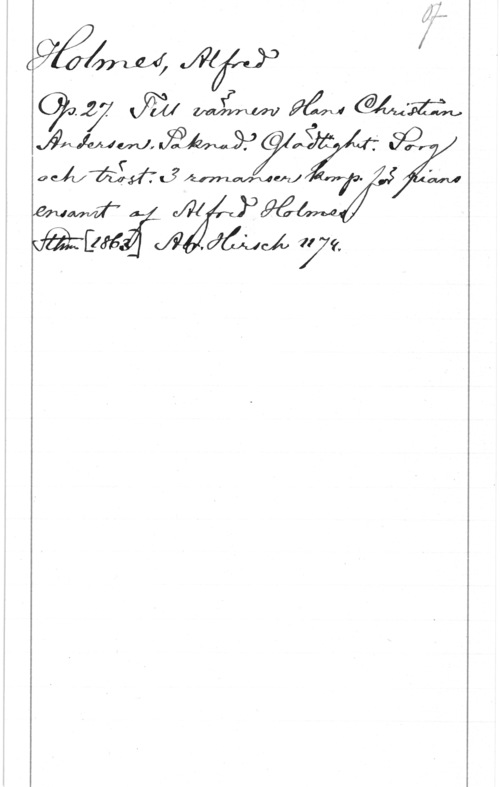 Of
Holmes, Alfred
Op. 27. Till vännen Hans Christian
Andersen. Saknad. Glädtighet. Sorg
och tröst. 3 romanser komp. för piano
ensamt af Alfred Holmes
Sthm [1863] Ab. Hirsch 1174.